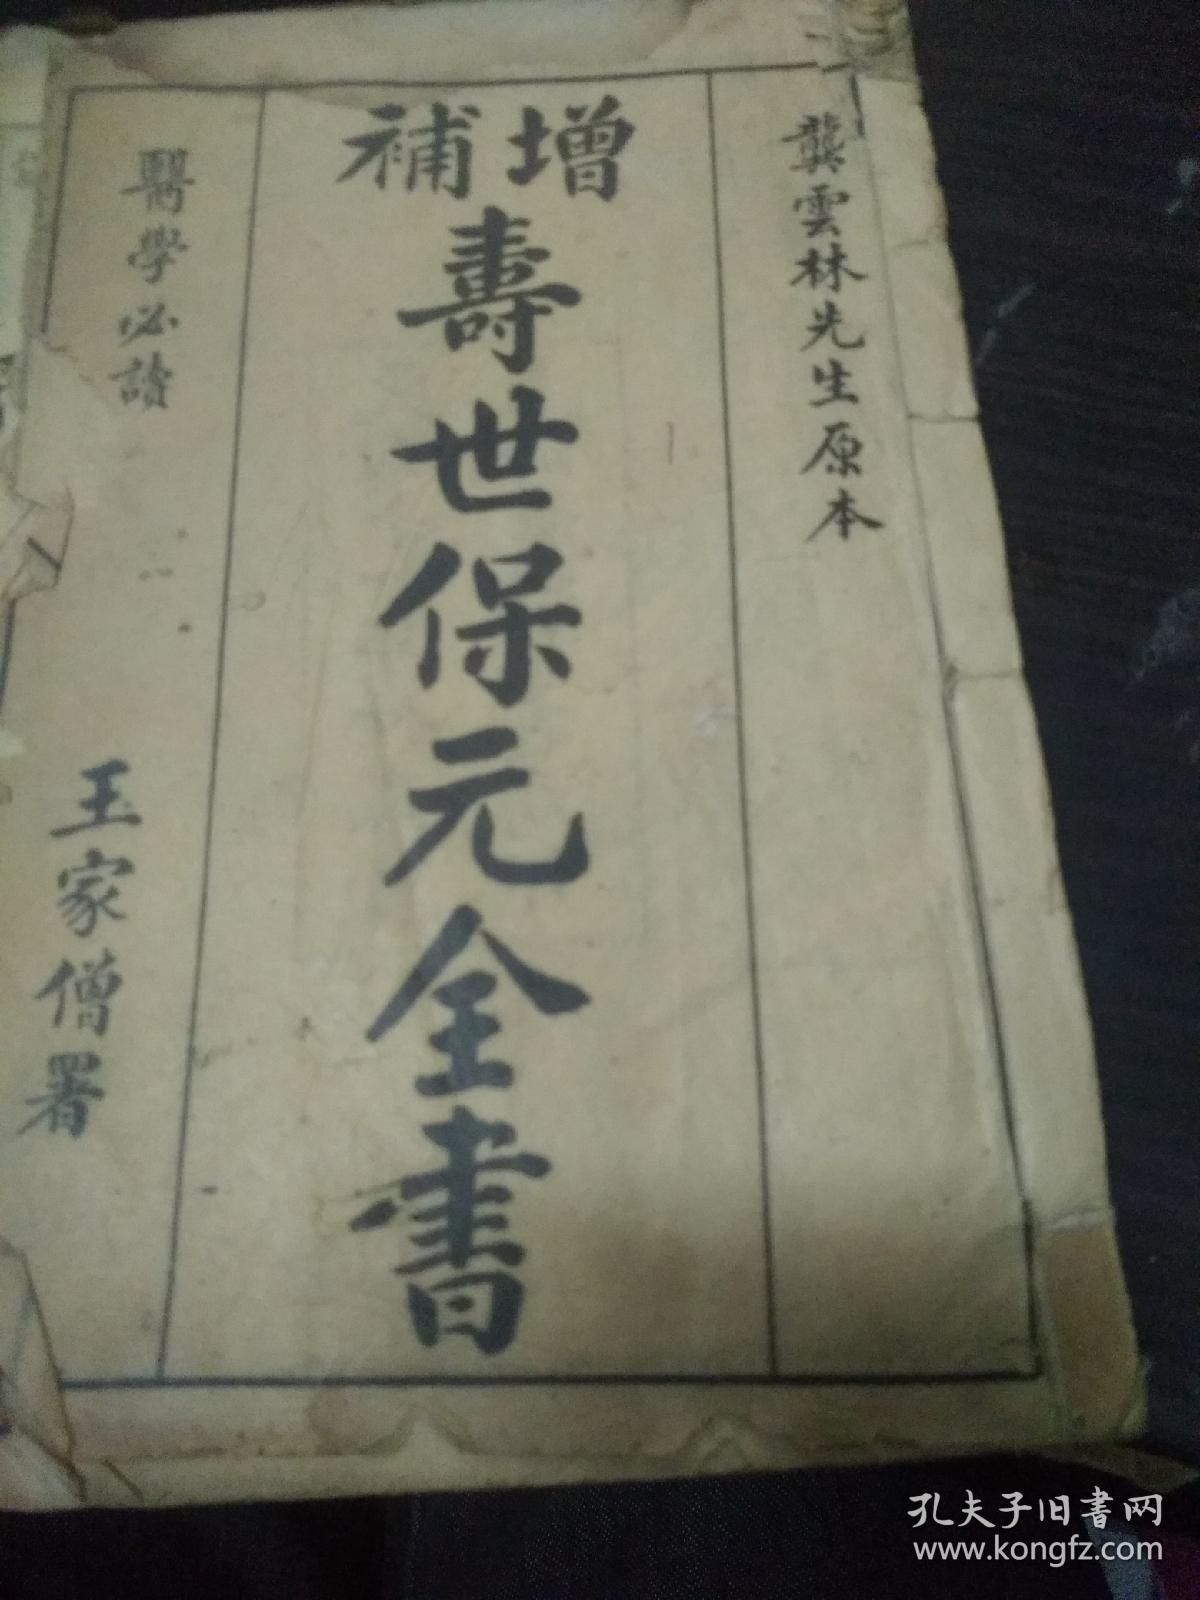 龔雲林先生原本
增補
壽世保元全書
醫學必讀
王家僧署
孔夫子旧書网
www.kongfz.com